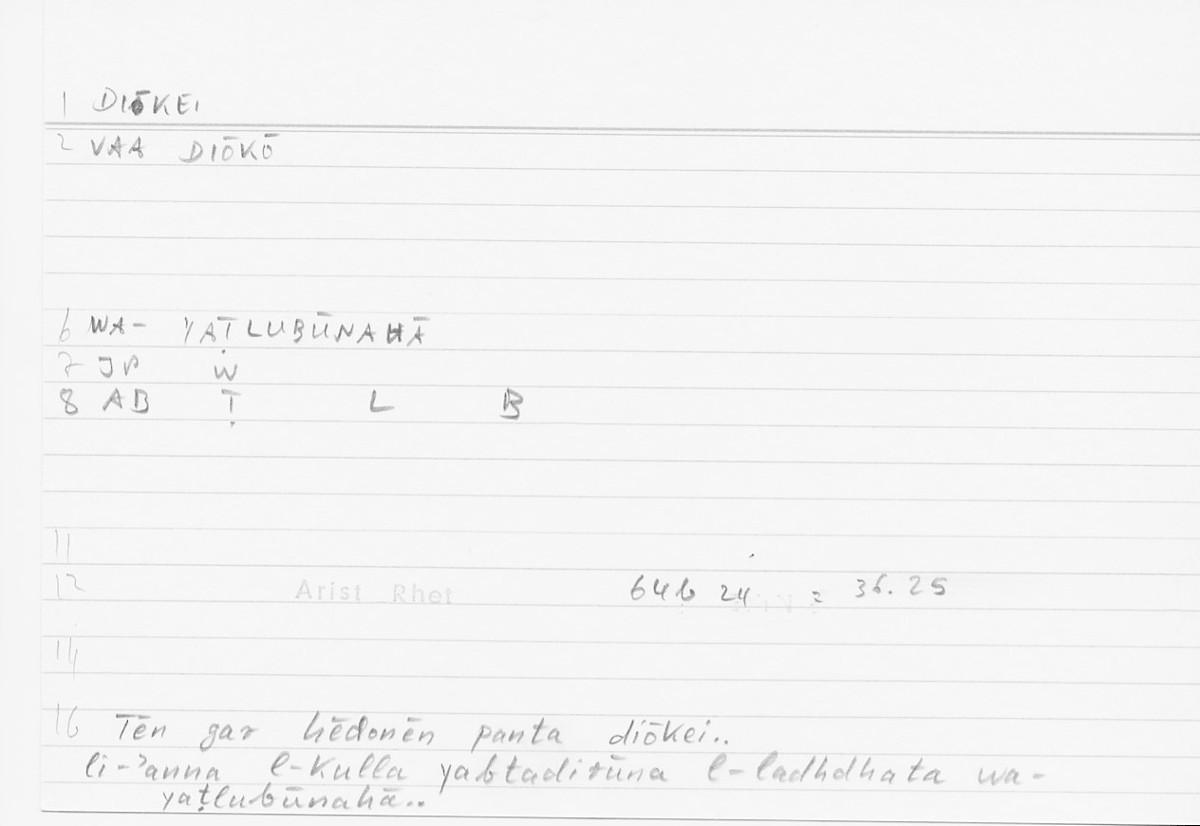 1 DIŌKEI
2 VAA DIŌKŌ
6 WA- YAṬLUBŪNAHĀ
7 IP W
8 AB Ṭ L B
11
12 Arist Rhet 64b 24 = 36.25
14
16 Tēn gar hēdonēn panta diōkei..
li-ʾanna l-kulla yabtadirūna l-ladhdhata wa-
yaṭlubūnahā..